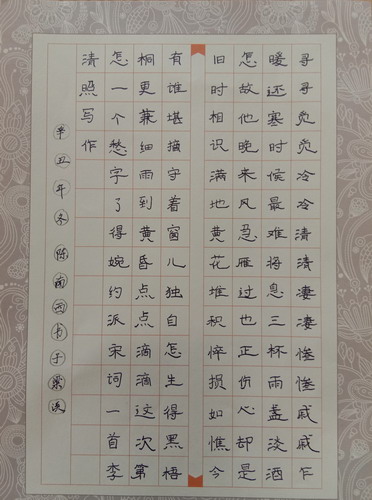 寻寻觅觅冷冷清清凄凄惨惨戚戚乍
暖还寒时候最难将息三杯雨盏淡酒
怎故他晚来风急雁过也正伤心却是
旧时相识满地黄花堆积悴损如憔今
有谁堪摘守着窗儿独自怎生得黑梧
桐更兼细雨到黄昏点点滴滴这次第
怎一个愁字了得婉约派宋词一首李
清照写作
辛丑年冬 陈南西书于